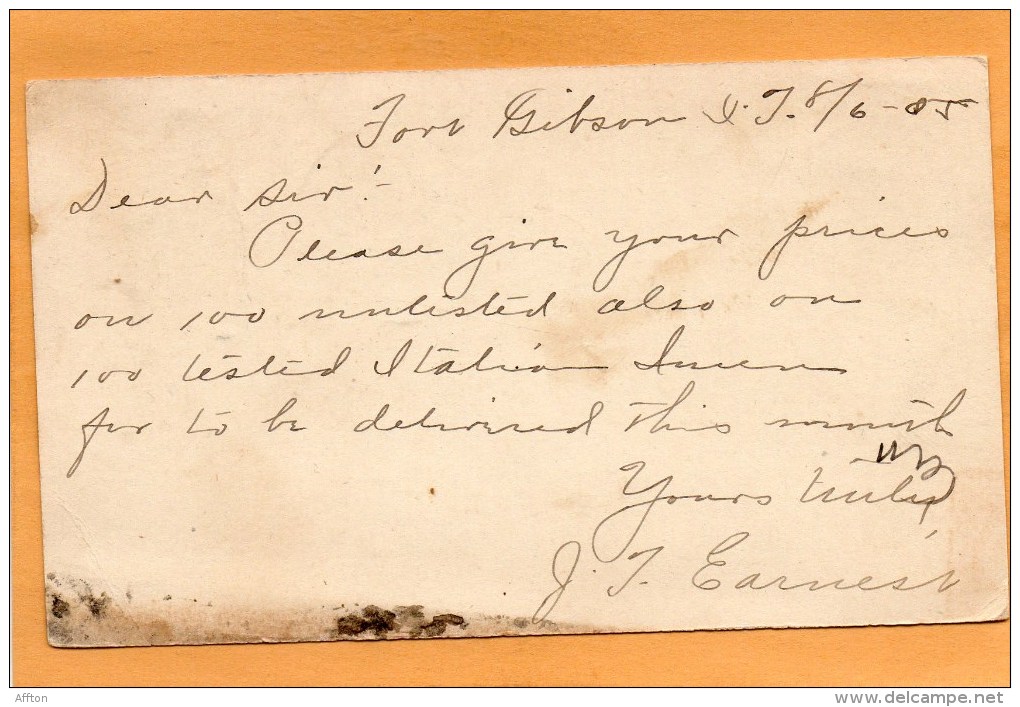 Fort Gibson I.T. 8/6-05
Dear Sir!-
Please give your prices
on 100 untested also on
100 tested Italian Queens
for to be delivered this month
Yours truly,
J. T. Earnest
Affton
www.delcampe.net